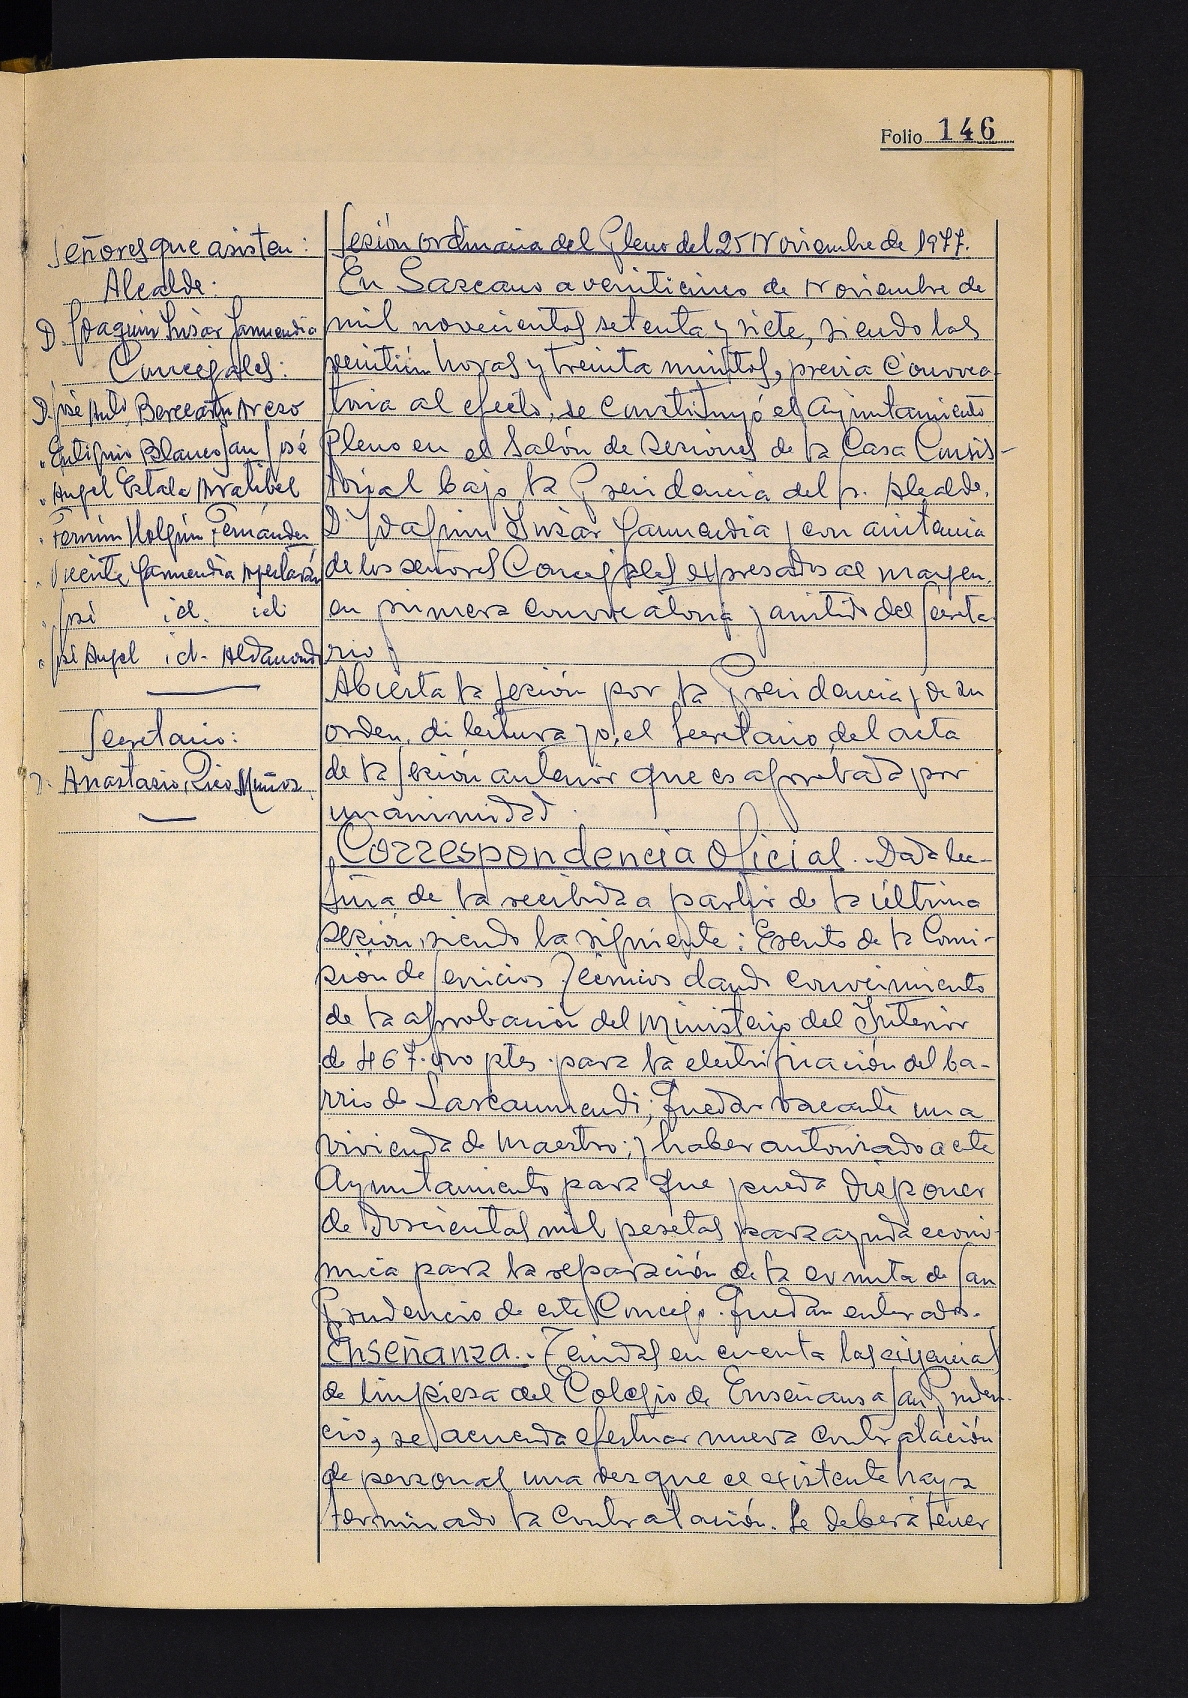 Folio 146
Señores que asisten:
Alcalde:
D. Joaquin Insar Garmendia
Concejales:
D. José Anto Bereciartu Arezo
" Eutiquio Blanco San José
" Angel Estala Aratibel
" Fermin Holguin Fernández
" Vicente Garmendia
" José id. id
" José Angel id. Aldanondo
Secretario:
D. Anastasio Rico Muñoz
Sesión ordinaria del Pleno del 25 Noviembre de 1977.
En Lazcano a veinticinco de Noviembre de
mil novecientos setenta y siete, siendo las
veintiún horas y treinta minutos, previa convoca-
toria al efecto, se constituyó el Ayuntamiento
Pleno en el Salón de Sesiones de la Casa Consis-
torial bajo la Presidencia del Sr. Alcalde.
D. Joaquin Insar Garmendia y con asistencia
de los señores Concejales expresados al margen.
en primera convocatoria y asistido del Secreta-
rio
Abierta la sesión por la Presidencia y de su
orden, di lectura yo, el Secretario, del acta
de la sesión anterior que es aprobada por
unanimidad.
Correspondencia Oficial.- Dada lec-
tura de la recibida a partir de la última
sesión, siendo la siguiente: Escrito de la Comi-
sión de Servicios Técnicos dando conocimiento
de la aprobación del Ministerio del Interior
de 467.000 ptes. para la electrificación del ba-
rrio de Lazcaumendi; quedar vacante una
vivienda de maestro; y haber autorizado a este
Ayuntamiento para que pueda disponer
de doscientas mil pesetas para ayuda econó-
mica para la reparación de la ermita de San
Prudencio de este Concejo. Quedan enterados.
Enseñanza.- Tenidas en cuenta las exigencias
de limpieza del Colegio de Enseñanza San Pruden-
cio, se acuerda efectuar nueva contratación
de personal una vez que el existente haya
terminado la contratación. Se deberá tener